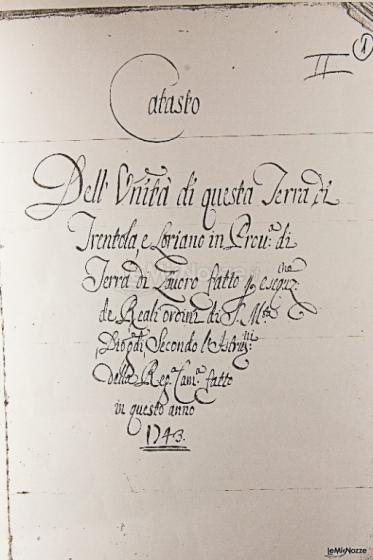 II
1
Catasto
Dell' Unità di questa Terra di
Trentola, e Loriano in Prov.ª di
Terra di Lavoro fatto p eseguz.ne
de Reali ordini di S. M.tà
, Secondo l'Istruz.ni
della Reg.ª Cam.ª fatto
in questo anno
1743.
leMieNozze